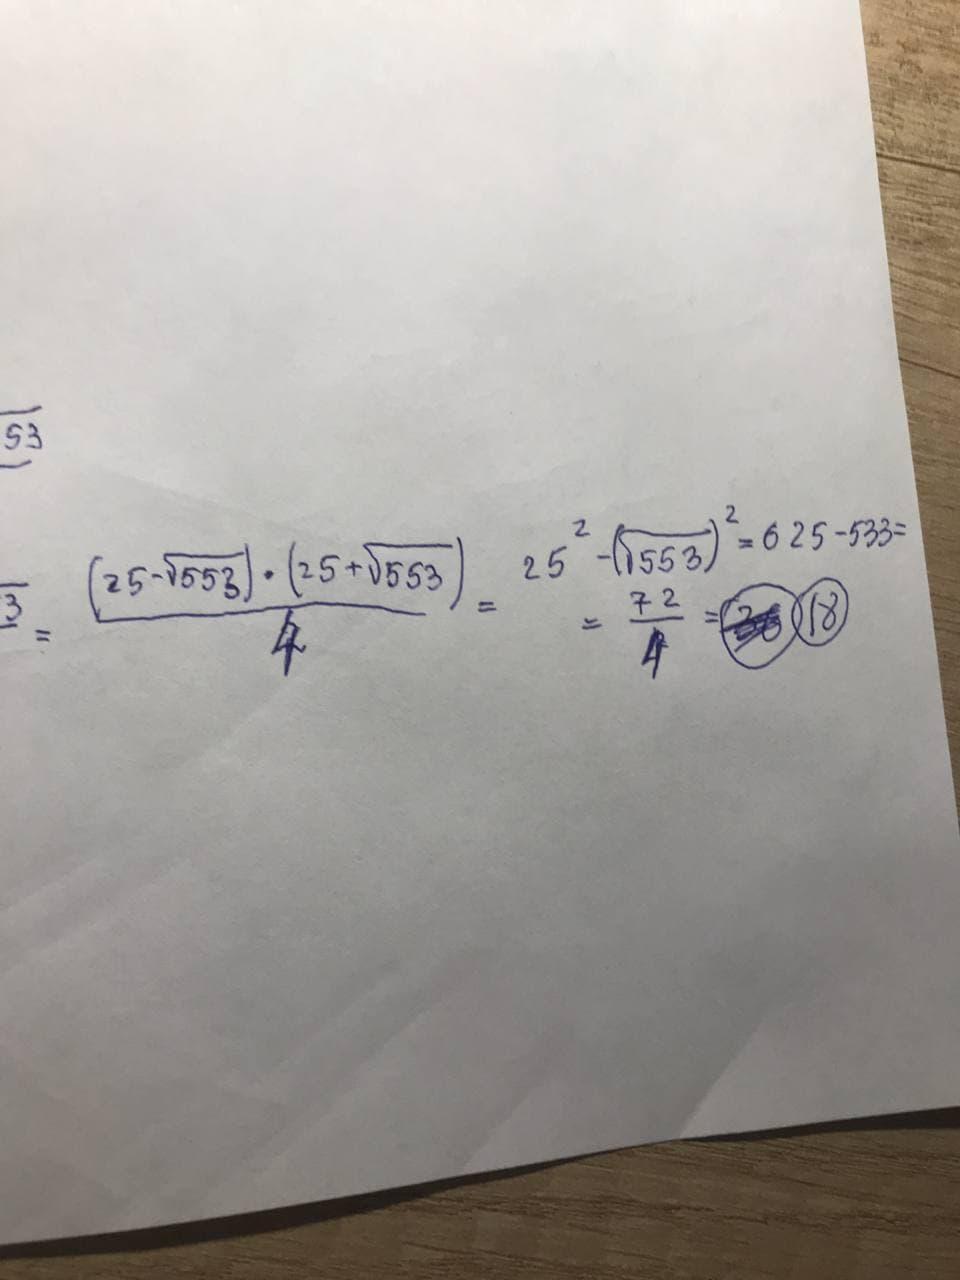 53
3 = (25-√553)·(25+√553) / 4 = 25² - (√553)² = 625-533=
= 72/4 = 18